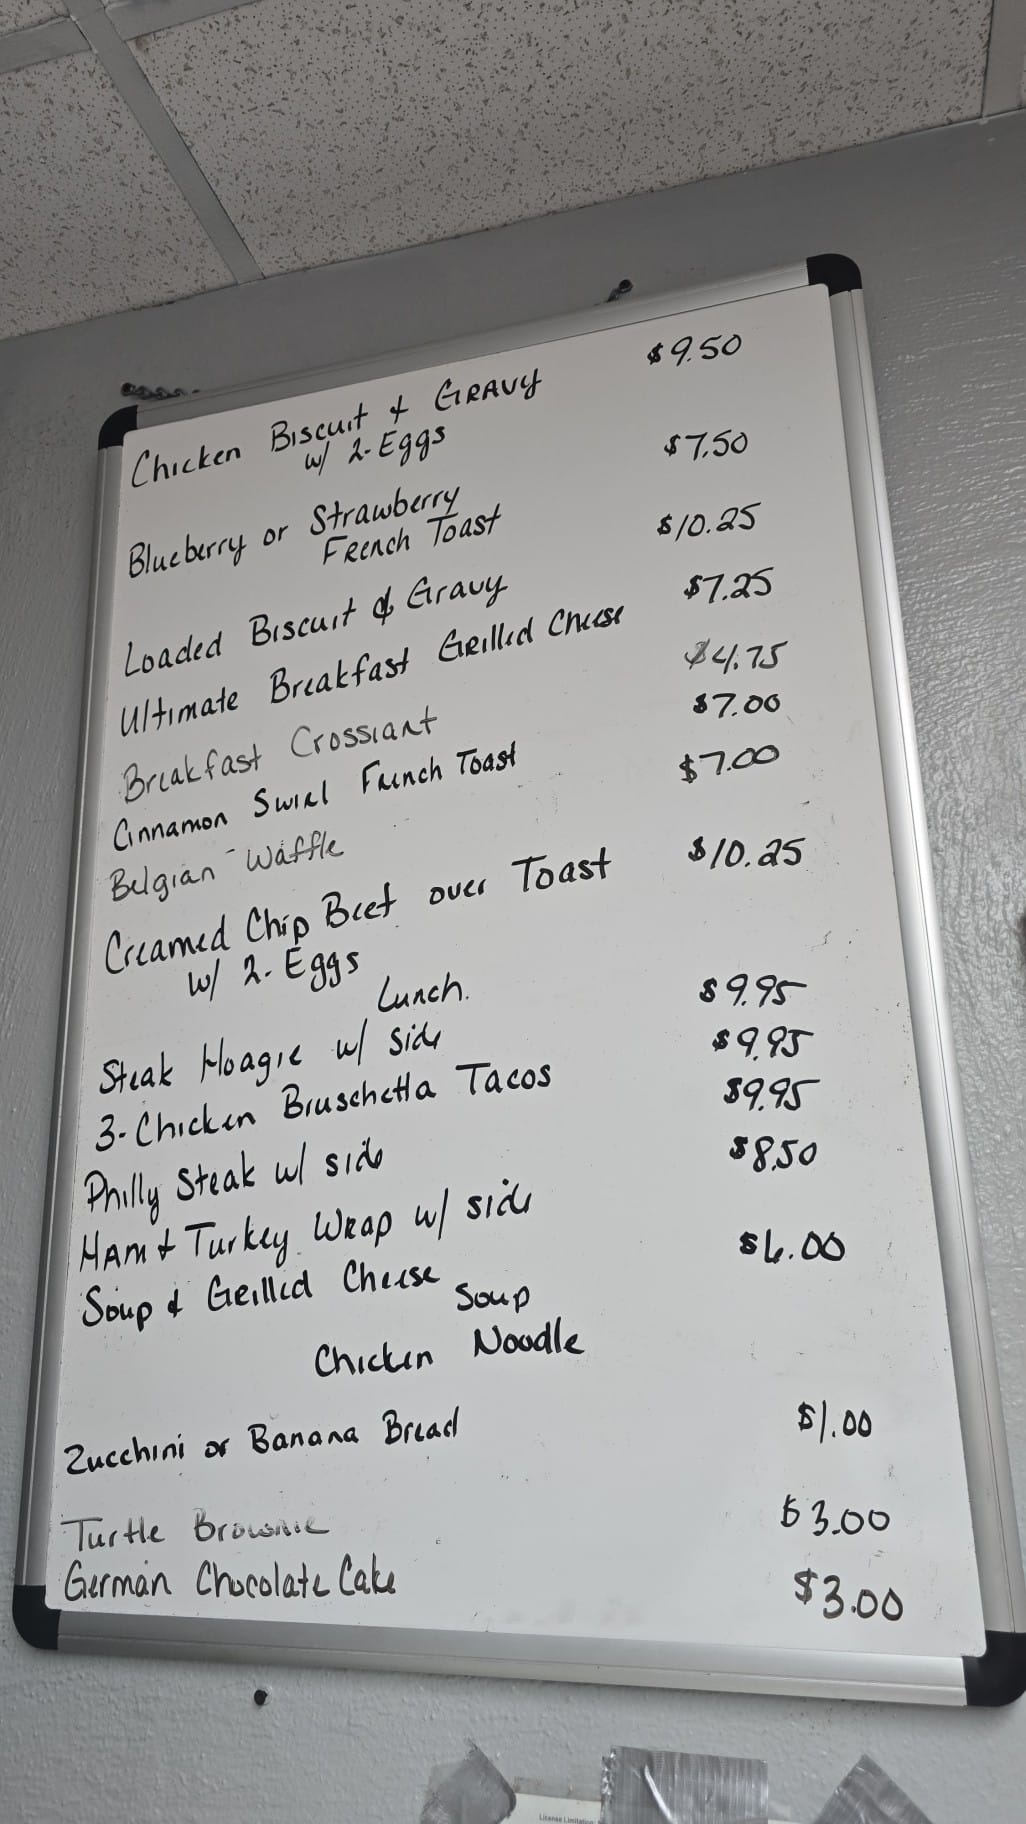 Chicken Biscuit & Gravy $9.50
w/ 2-Eggs
Blueberry or Strawberry $7.50
French Toast
Loaded Biscuit & Gravy $10.25
Ultimate Breakfast Grilled Cheese $7.25
Breakfast Crossiant $4.75
Cinnamon Swirl French Toast $7.00
Belgian Waffle $7.00
Creamed Chip Beef over Toast $10.25
w/ 2-Eggs
Lunch.
Steak Hoagie w/ side $9.95
3-Chicken Bruschetta Tacos $9.95
Philly Steak w/ side $9.95
Ham & Turkey Wrap w/ side $8.50
Soup & Grilled Cheese $6.00
Soup
Chicken Noodle
Zucchini or Banana Bread $1.00
Turtle Brownie $3.00
German Chocolate Cake $3.00
License Limitation